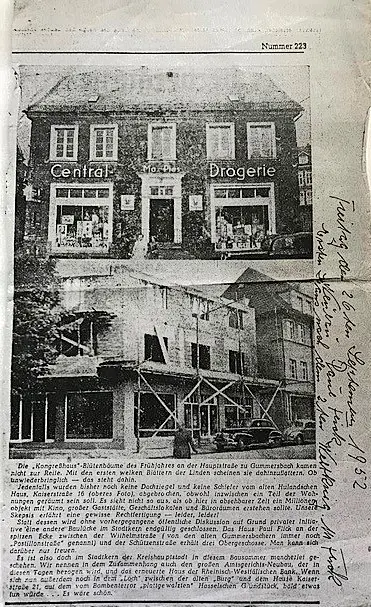 Nummer 223
Central
Drogerie
Die „Kongreßhaus"-Blütenbäume des Frühjahres an der Hauptstraße zu Gummersbach kamen
nicht zur Reife. Mit den ersten welken Blättern der Linden scheinen sie dahinzuflattern. Ob
unwiederbringlich — das steht dahin.
Jedenfalls wurden bisher noch keine Dachziegel und keine Schiefer vom alten Hulandschen
Haus, Kaiserstraße 16 (oberes Foto), abgebrochen, obwohl inzwischen ein Teil der Woh-
nungen geräumt sein soll. Es sieht nicht so aus, als ob hier in absehbarer Zeit ein Millionen-
objekt mit Kino, großer Gaststätte, Geschäftslokalen und Büroräumen erstehen sollte. Unsere
Skepsis erfährt eine gewisse Rechtfertigung — leider, leider!
Statt dessen wird ohne vorhergegangene öffentliche Diskussion auf Grund privater Initia-
tive eine andere Baulücke im Stadtkern endgültig geschlossen. Das Haus Paul Fluck an der
spitzen Ecke zwischen der Wilhelmstraße (von den alten Gummersbachern immer noch
„Postillonstraße" genannt) und der Schützenstraße erhält drei Obergeschosse. Man kann sich
darüber nur freuen.
Es ist also doch im Stadtkern der Kreishauptstadt in diesem Bausommer mancherlei ge-
schehen. Wir nennen in dem Zusammenhang auch den großen Amtsgerichts-Neubau, der in
diesen Tagen bezogen wird, und das erneuerte Haus der Rheinisch-Westfälischen Bank. Wenn
sich nun außerdem noch in dem „Loch" zwischen der alten „Burg" und dem Hause Kaiser-
straße 21, auf dem vom Bombenterror „plattgewalzten" Hasselschen Grundstück, bald etwas
tun würde . . . Es wäre schön.
Freitag den 26ten September 1952